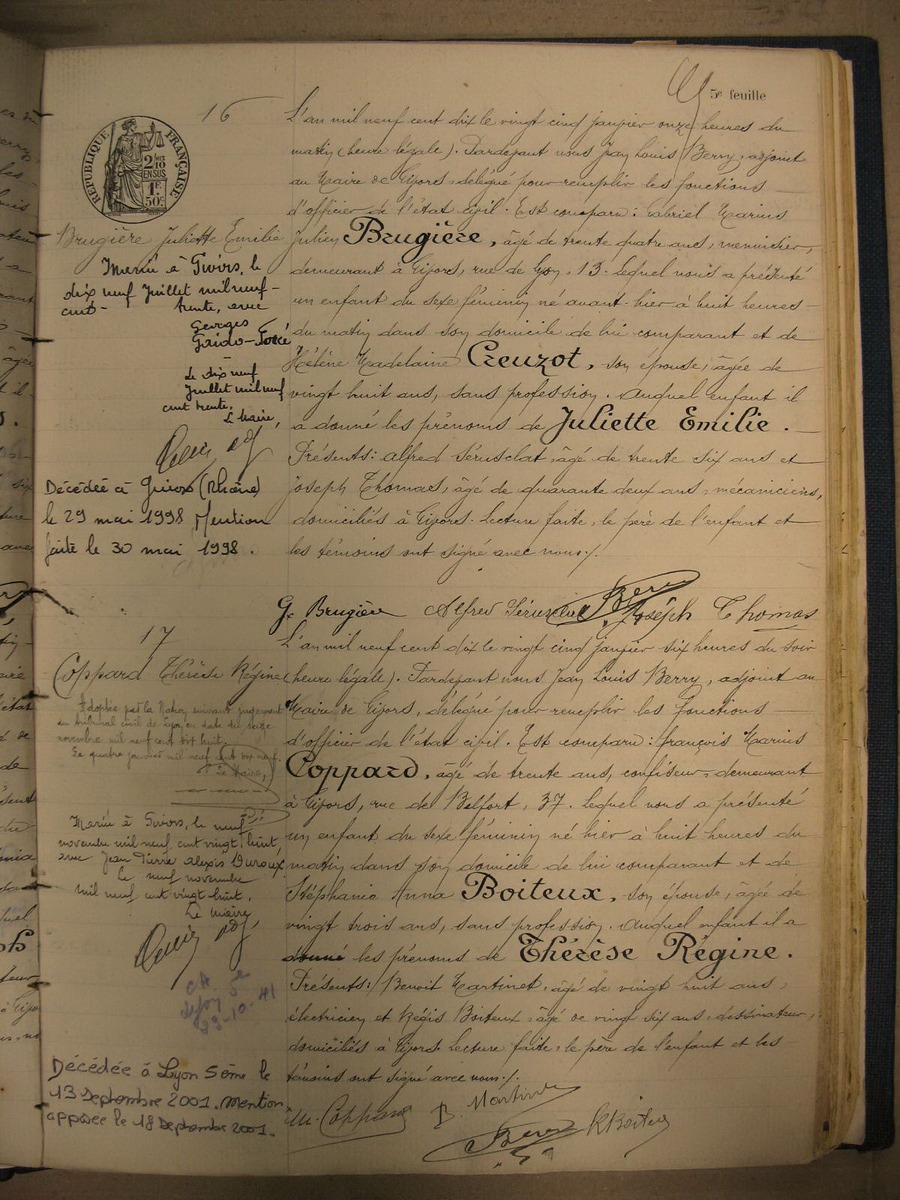 5e feuille
RÉPUBLIQUE FRANÇAISE
2/10 EN SUS
1F 50c
16
L'an mil neuf cent dix le vingt cinq janvier onze heures du
matin (heure légale). Pardevant nous Jean Louis Berry, adjoint
au Maire de Givors, délégué pour remplir les fonctions
d'officier de l'état civil. Est comparu : Gabriel Marius
Brugière Juliette Emilie
Julien Brugière, âgé de trente quatre ans, menuisier,
demeurant à Givors, rue de Lyon, 13. Lequel nous a présenté
un enfant du sexe féminin né avant-hier à huit heures
du matin dans son domicile de lui comparant et de
Hélène Madelaine Creuzot, son épouse, âgée de
vingt huit ans, sans profession. Auquel enfant il
a donné les prénoms de Juliette Emilie.
Présents : Alfred Séruclat, âgé de trente six ans et
Joseph Thomas, âgé de quarante deux ans, mécaniciens,
domiciliés à Givors. Lecture faite, le père de l'enfant et
les témoins ont signé avec nous ./.
Mariée à Givors, le
dix neuf Juillet mil neuf-
cent-
trente, avec
Georges
Le dix neuf
Juillet mil neuf
cent trente.
Le Maire,
adj
Décédée à Givors (Rhône)
le 29 mai 1998 Mention
faite le 30 mai 1998.
G. Brugière Alfred Séruclat Berry Joseph Thomas
17
L'an mil neuf cent dix le vingt cinq janvier six heures du soir
Coppard Thérèse Régine
(heure légale). Pardevant nous Jean Louis Berry, adjoint au
Maire de Givors, délégué pour remplir les fonctions
d'officier de l'état civil. Est comparu : François Marius
Coppard, âgé de trente ans, confiseur, demeurant
à Givors, rue de Belfort, 37. Lequel nous a présenté
un enfant du sexe féminin né hier à huit heures du
matin dans son domicile de lui comparant et de
Stéphanie Anna Boiteux, son épouse, âgée de
vingt trois ans, sans profession. Auquel enfant il a
donné les prénoms de Thérèse Régine.
Présents : Benoit Martinet, âgé de vingt huit ans,
électricien et Régis Boiteux, âgé de vingt six ans, dessinateur,
domiciliés à Givors. Lecture faite, le père de l'enfant et les
témoins ont signé avec nous ./.
Adoptée par la Nation suivant jugement
du tribunal civil de Lyon en date du seize
novembre mil neuf cent dix huit.
Le quatre janvier mil neuf cent dix neuf.
Le Maire,
Mariée à Givors, le neuf
novembre mil neuf cent vingt huit,
avec Jean Pierre Alexis Duroux
Le neuf novembre
mil neuf cent vingt huit.
Le maire
adj,
23-10-41
Décédée à Lyon 5ème le
13 Septembre 2001. mention
apposée le 18 Septembre 2001.
M. Coppard B. Martinet
Berry R Boiteux